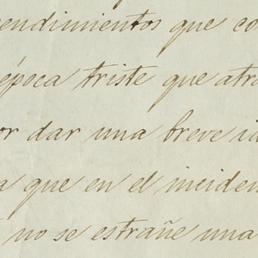 endimientos que co
época triste que atr
or dar una breve i
a que en el inciden
no se estrañe una